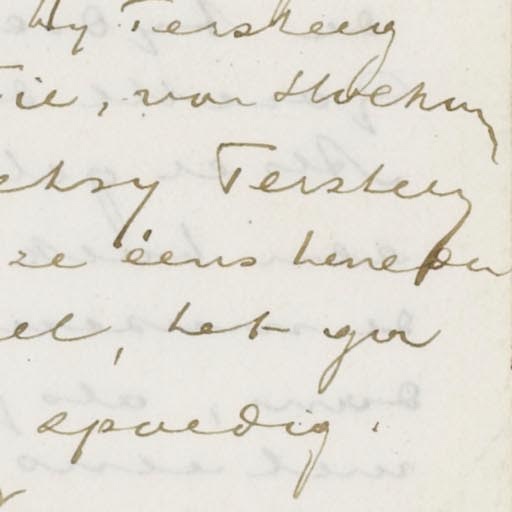 by Tersteeg
Fie, van Stockum
Betsy Tersteeg
ze eens beneden
el, het ga
spoedig.